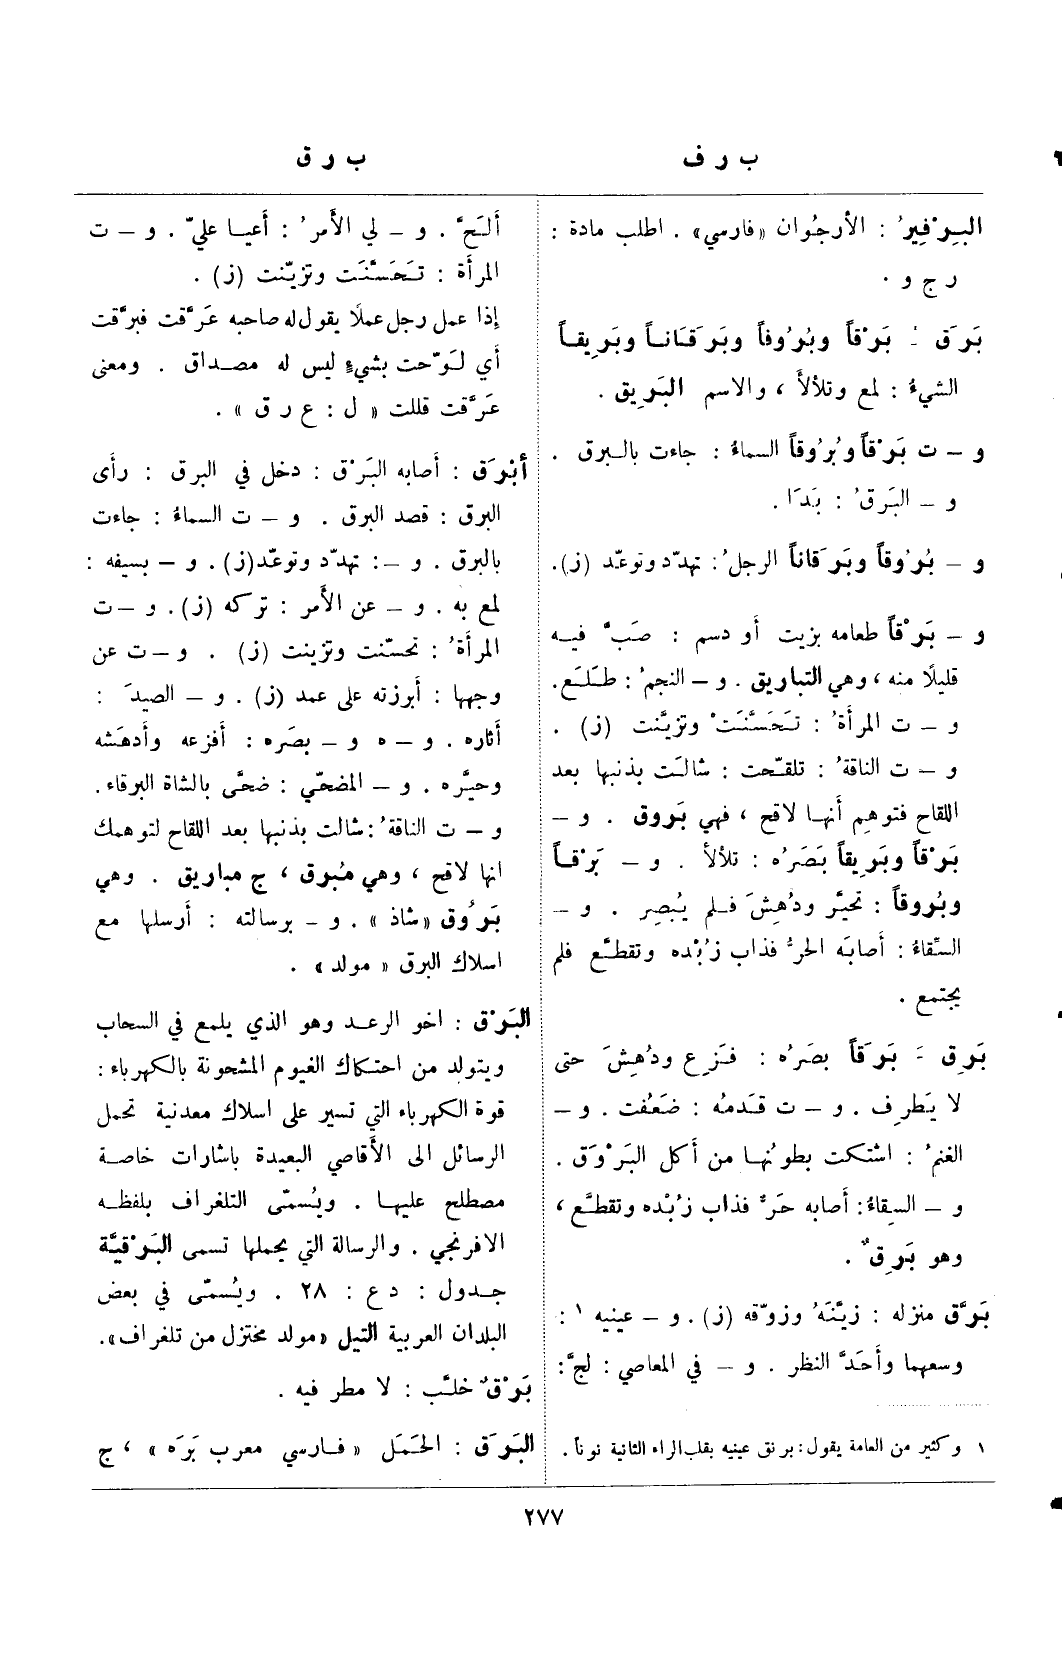 ب ر ف
ب ر ق
البِرْفِيرُ : الأرجُوان «فارسي» . اطلب مادة :
ر ج و .
بَرَق َ بَرْقاً وبُرُوقاً وبَرَقَانـاً وبَرِيقـاً
الشيءُ : لمع وتلألأ ، والاسم البَرِيق .
و – ت بَرْقاً وبُرُوقاً السماءُ : جاءت بالـبرق .
و – البَرقُ : بَدَا .
و – بُرُوقاً وبَرَقاناً الرجلُ : تهدّد وتوعّد (ز).
و – بَرْقاً طعامه بزيت أو دسم : صَبَّ فيـه
قليلًا منه ، وهي التباريق . و – النجمُ : طَـلَـع.
و – ت المرأةُ : تَحَسَّنَتْ وتزيَّنت (ز) .
و – ت الناقةُ : تلقّحت : شالَت بذنبها بعد
اللقاح فتوهم أنهـا لاقح ، فهي بَروق . و –
بَرْقاً وبَرِيقاً بَصَرُه : تلألأ . و – بَرْقـاً
وبُروقاً : تحيَّر ودُهِشَ فـلم يُبصِر . و –
السِّقاءُ : أصابَه الحرُّ فذاب زُبْده وتقطـَّع فلم
يجتمع .
بَرِق َ بَرَقاً بصَرُه : فَـزِع ودُهِشَ حتى
لا يَطرِف . و – ت قَدَمُه : ضَعُفت . و –
الغنمُ : اشتكت بطونُهـا من أكل البَرْوَق .
و – السِقاءُ : أصابه حَرٌّ فذاب زُبْده وتقطـَّع ،
وهو بَرِقٌ .
بَرَّق منزله : زيَّنَهُ وزوّقه (ز) . و – عينيه ١ :
وسعهما وأَحَدَّ النظر . و – في المعاصي : لجَّ :
١ وكثير من العامة يقول : برنق عينيه بقلب الراء الثانية نوناً .
ألَحَّ . و – لي الأمرُ : أعيـا عليّ . و – ت
المرأَة : تَحَسَّنَت وتزيّنت (ز) .
إذا عمل رجل عملًا يقول له صاحبه عَرَّقت فبرَّقت
أي لَوّحت بشيءٍ ليس له مصـداق . ومعنى
عَرَّقت قللت « ل : ع ر ق » .
أبْرَق : أصابه البَرْق : دخل في البرق : رأى
البرق : قصد البرق . و – ت السماءُ : جاءت
بالبرق . و – : تهدّد وتوعّد (ز) . و – بسيفه :
لمع به . و – عن الأمر : تركه (ز) . و – ت
المرأةُ : تحسّنت وتزينت (ز) . و – ت عن
وجهها : أبرزته على عمد (ز) . و – الصيدَ :
أثاره . و – ه و – بصَره : أفزعه وأدهَشه
وحيَّره . و – المضحّي : ضحَّى بالشاة البرقاء .
و – ت الناقةُ : شالت بذنبها بعد اللقاح لتوهمك
انها لاقح ، وهي مُبرق ، ج مباريق . وهي
بَرُوق «شاذ» . و – برسالته : أرسلها مع
اسلاك البرق « مولد » .
البَرْق : اخو الرعـد وهو الذي يلمع في السحاب
ويتولد من احتكاك الغيوم المشحونة بالكهرباء :
قوة الكهرباء التي تسير على اسلاك معدنية تحمل
الرسائل الى الأقاصي البعيدة باشارات خاصـة
مصطلح عليهـا . ويُسمّى التلغراف بلفظـه
الافرنجي . والرسالة التي يحملها تسمى البَرْقيَّة
جـدول : د ع : ٢٨ . ويُسمّى في بعض
البلدان العربية التيل «مولد مختزل من تلغراف».
بَرْقٌ خلَّب : لا مطر فيه .
البَرَق : الحَمَل « فـارسي معرب بَرَه » ، ج
٢٧٧